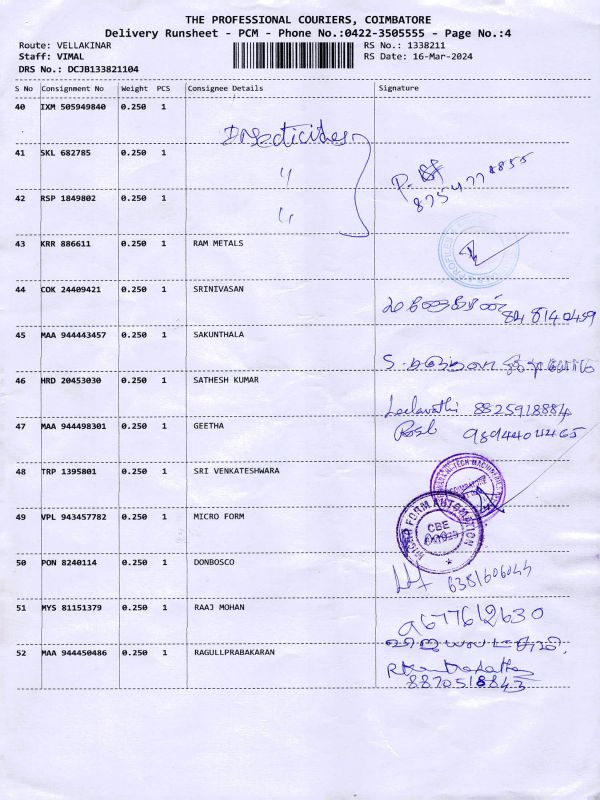 THE PROFESSIONAL COURIERS, COIMBATORE
Delivery Runsheet - PCM - Phone No.:0422-3505555 - Page No.:4
Route: VELLAKINAR RS No.: 1338211
Staff: VIMAL RS Date: 16-Mar-2024
DRS No.: DCJB133821104
S No Consignment No Weight PCS Consignee Details Signature
40 IXM 505949840 0.250 1
Insecticides
41 SKL 682785 0.250 1 "
8754778855
42 RSP 1849802 0.250 1 "
43 KRR 886611 0.250 1 RAM METALS
44 COK 24409421 0.250 1 SRINIVASAN
45 MAA 944443457 0.250 1 SAKUNTHALA
46 HRD 20453030 0.250 1 SATHESH KUMAR
Leelavathi 8825918884
47 MAA 944498301 0.250 1 GEETHA
48 TRP 1395801 0.250 1 SRI VENKATESHWARA
MICRO FORM AUTOMATION
CBE
49 VPL 943457782 0.250 1 MICRO FORM
50 PON 8240114 0.250 1 DONBOSCO
6381606044
51 MYS 81151379 0.250 1 RAAJ MOHAN
9677612630
52 MAA 944450486 0.250 1 RAGULLPRABAKARAN
8870518843